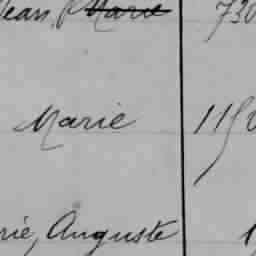 Jean, Marie 730
Marie 1150
rié, Auguste 1